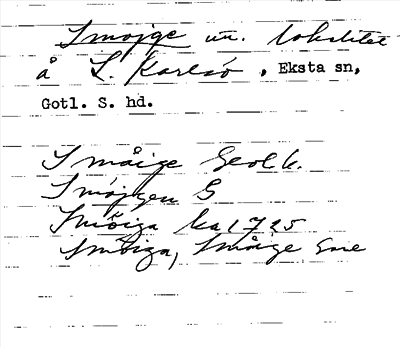 Smojge ur. lokalitet
å L. Karlsö, Eksta sn,
Gotl. S. hd.
Småige Geol k.
Smöjgen G
Smöiga ka 1725
Smöiga, Småige Sne